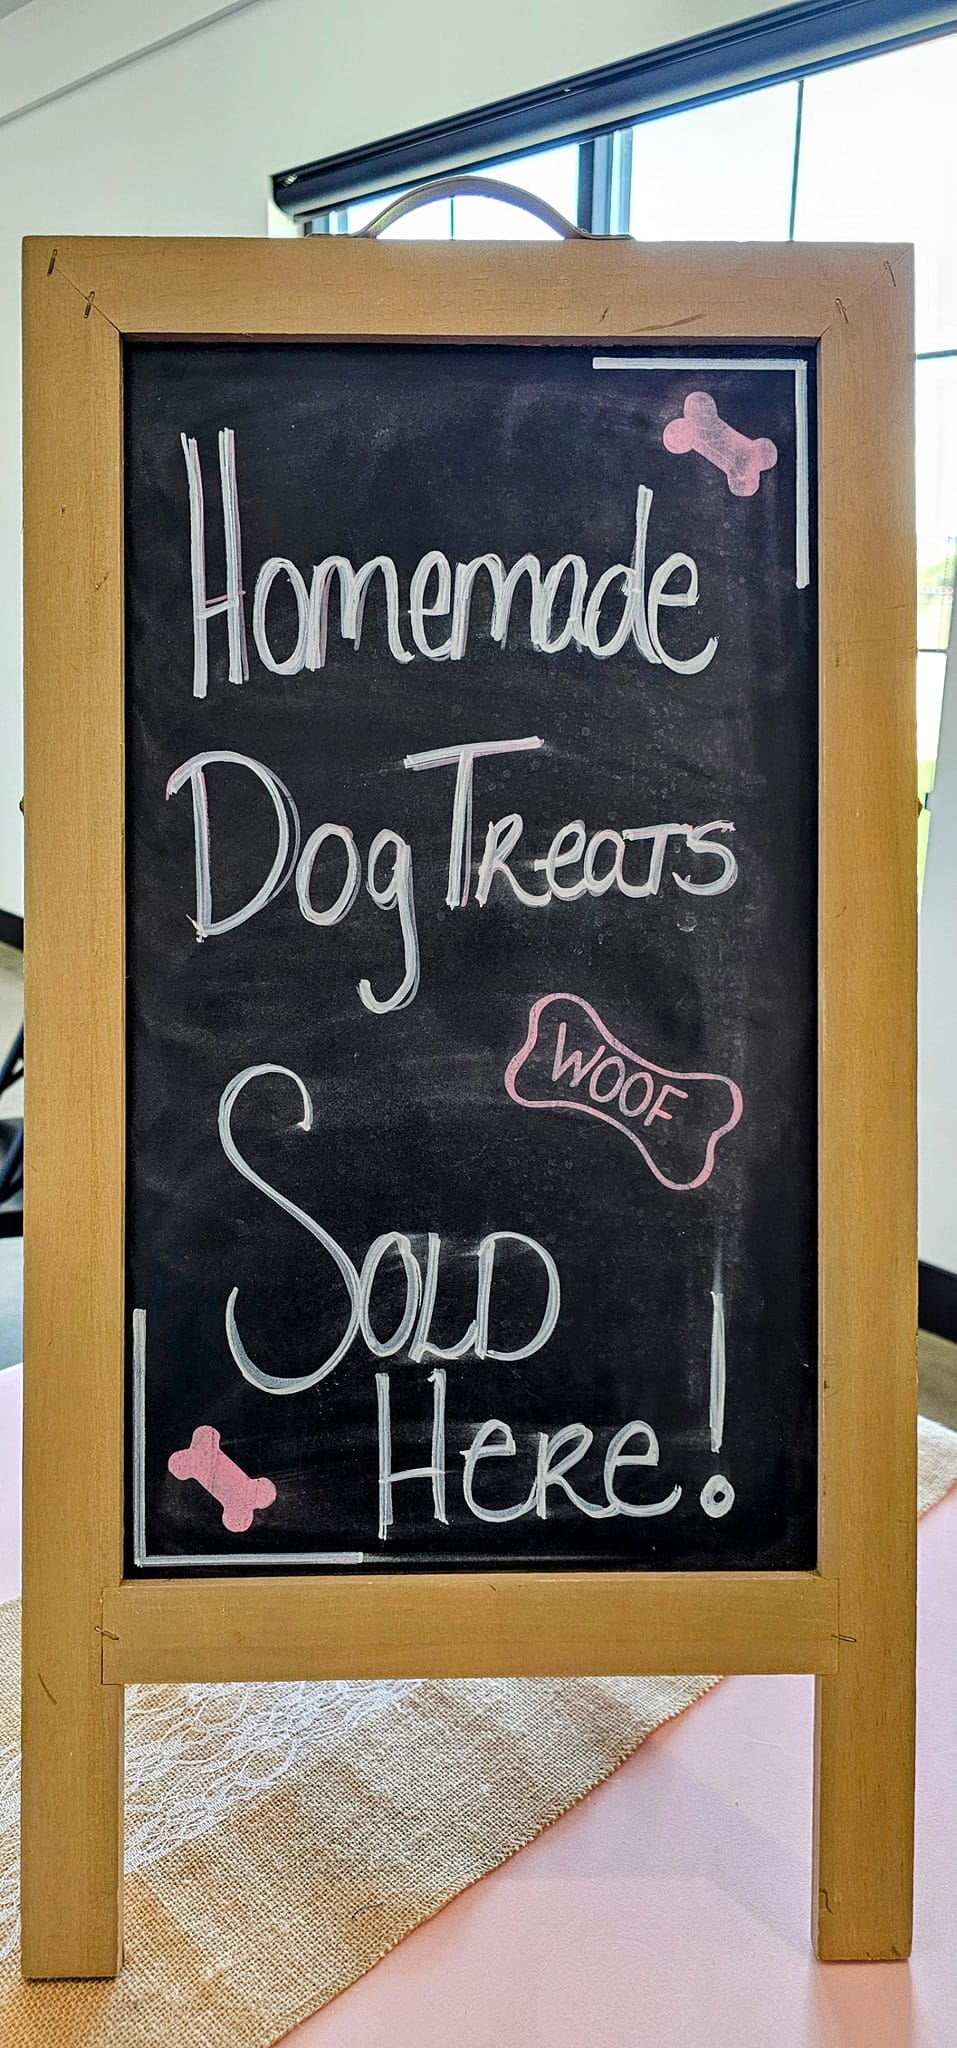 Homemade
Dog Treats
WOOF
Sold
Here!